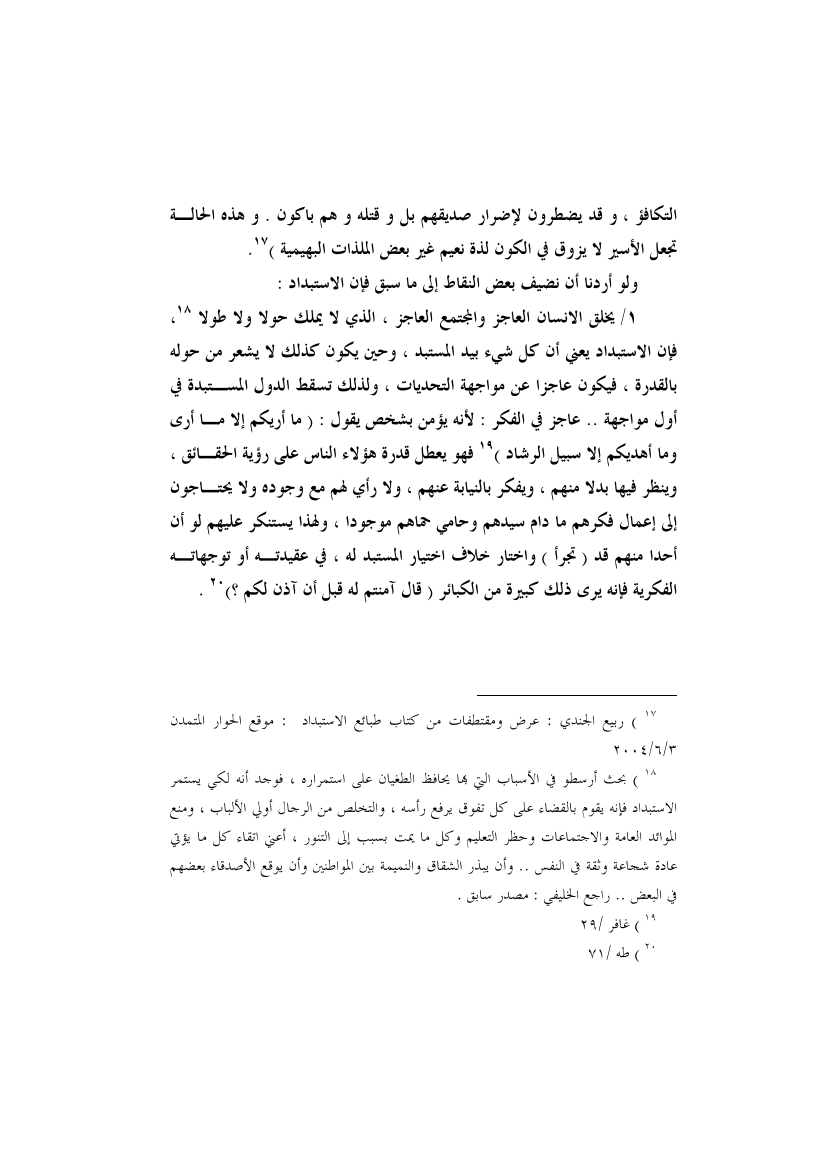 التكافؤ ، و قد يضطرون لإضرار صديقهم بل و قتله و هم باكون . و هذه الحالـــة
تجعل الأسير لا يزوق في الكون لذة نعيم غير بعض الملذات البهيمية )١٧.
ولو أردنا أن نضيف بعض النقاط إلى ما سبق فإن الاستبداد :
١/ يخلق الانسان العاجز والمجتمع العاجز ، الذي لا يملك حولا ولا طولا ١٨،
فإن الاستبداد يعني أن كل شيء بيد المستبد ، وحين يكون كذلك لا يشعر من حوله
بالقدرة ، فيكون عاجزا عن مواجهة التحديات ، ولذلك تسقط الدول المســـتبدة في
أول مواجهة .. عاجز في الفكر : لأنه يؤمن بشخص يقول : ( ما أريكم إلا مـــا أرى
وما أهديكم إلا سبيل الرشاد )١٩ فهو يعطل قدرة هؤلاء الناس على رؤية الحقـــائق ،
وينظر فيها بدلا منهم ، ويفكر بالنيابة عنهم ، ولا رأي لهم مع وجوده ولا يحتـــاجون
إلى إعمال فكرهم ما دام سيدهم وحامي حماهم موجودا ، ولهذا يستنكر عليهم لو أن
أحدا منهم قد ( تجرأ ) واختار خلاف اختيار المستبد له ، في عقيدتـــه أو توجهاتـــه
الفكرية فإنه يرى ذلك كبيرة من الكبائر ( قال آمنتم له قبل أن آذن لكم ؟)٢٠ .
١٧ ) ربيع الجندي : عرض ومقتطفات من كتاب طبائع الاستبداد : موقع الحوار المتمدن
٢٠٠٤/٦/٣
١٨ ) بحث أرسطو في الأسباب التي بها يحافظ الطغيان على استمراره ، فوجد أنه لكي يستمر
الاستبداد فإنه يقوم بالقضاء على كل تفوق يرفع رأسه ، والتخلص من الرجال أولي الألباب ، ومنع
الموائد العامة والاجتماعات وحظر التعليم وكل ما يمت بسبب إلى التنور ، أعني اتقاء كل ما يؤتي
عادة شجاعة وثقة في النفس .. وأن يبذر الشقاق والنميمة بين المواطنين وأن يوقع الأصدقاء بعضهم
في البعض .. راجع الخليفي : مصدر سابق .
١٩ ) غافر /٢٩
٢٠ ) طه /٧١